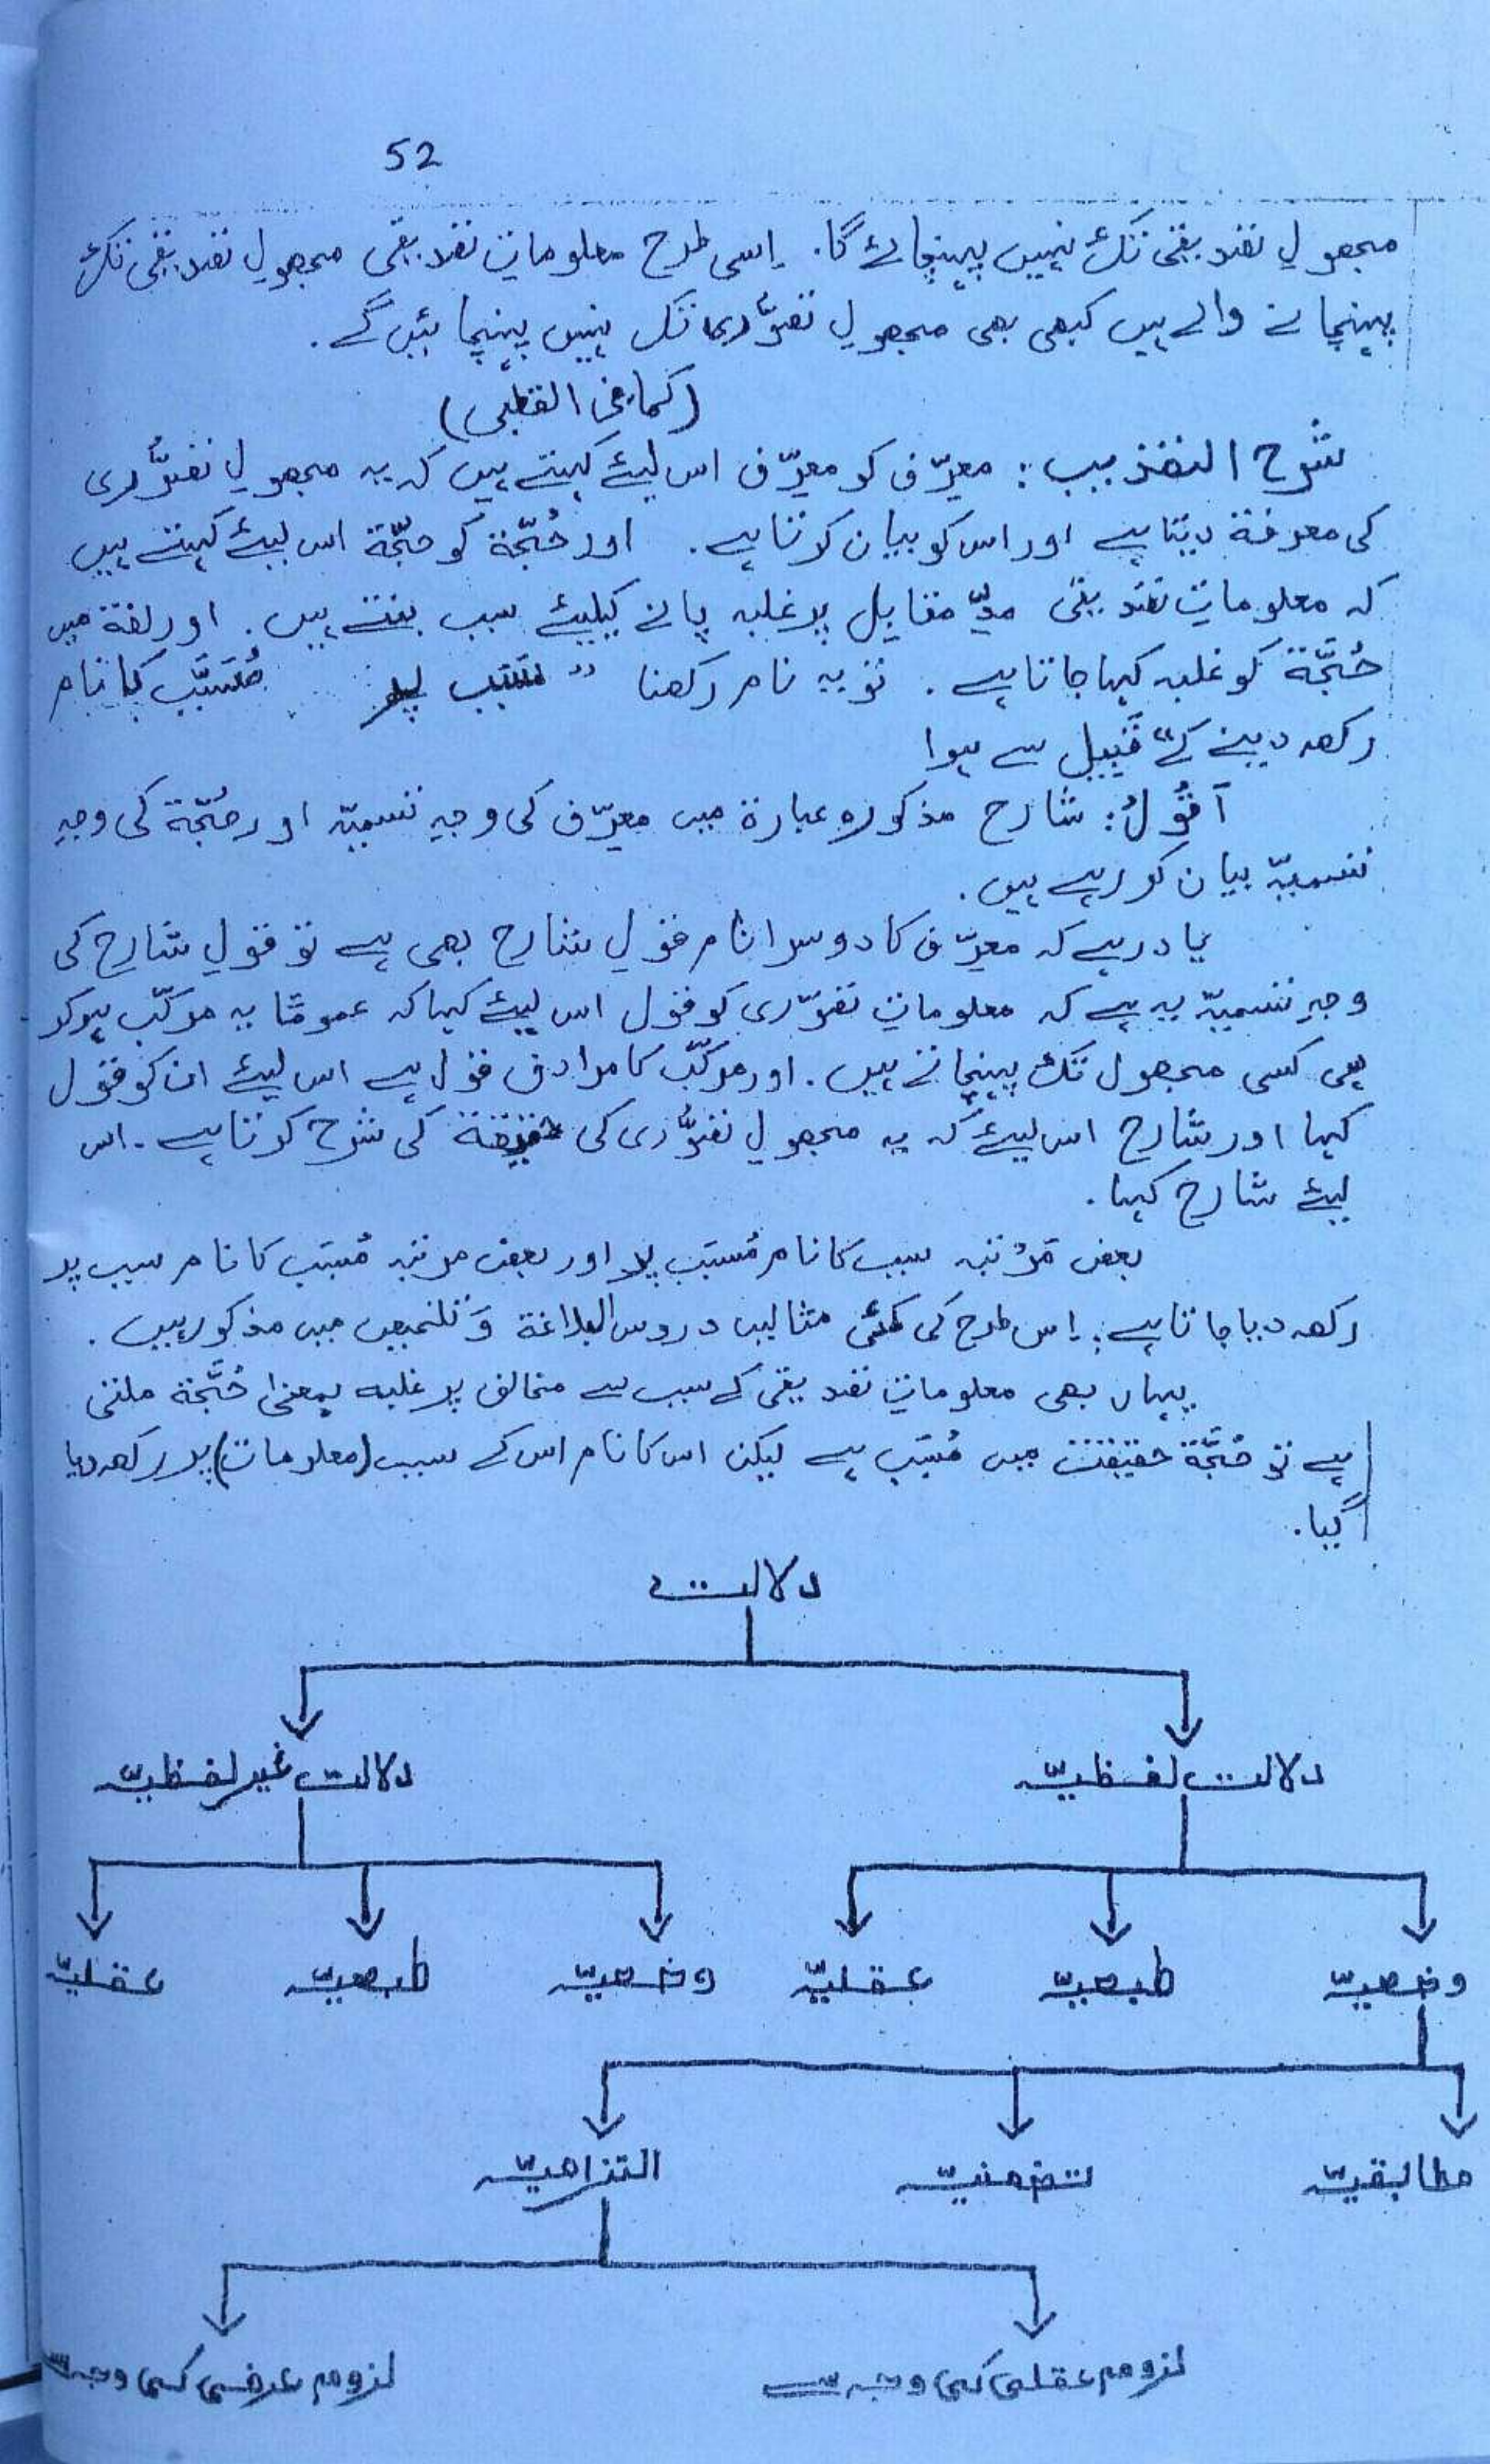 52
مجھولِ تصدیقی تک نہیں پہنچائے گا. اِسی طرح معلوماتِ تصدیقی مجھولِ تصدیقی تک
پہنچانے والے ہیں کبھی بھی مجھولِ تصوُّری تک نہیں پہنچائیں گے.
(کما فی القطبی)
شرح التھذیب: معرِّف کو معرِّف اس لیئے کہتے ہیں کہ یہ مجھولِ تصوُّری
کی معرفۃ دیتا ہے اور اس کو بیان کرتا ہے. اور حُجّۃ کو حجّۃ اس لیئے کہتے ہیں
کہ معلوماتِ تصدیقی مدِّ مقابِل پر غلبہ پانے کیلیئے سبب بنتے ہیں. اور لغۃ میں
حُجَّۃ کو غلبہ کہا جاتا ہے. تو یہ نام رکھنا ” سَبَب پر مُسَبَّب کا نام
رکھ دینے کے“ قَبِیل سے ہوا
اَقُولُ: شارح مذکورہ عبارۃ میں معرِّف کی وجہِ تسمیّہ اور حُجّۃ کی وجہِ
تسمیّہ بیان کر رہے ہیں.
یاد رہے کہ معرِّف کا دوسرا نام قولِ شارح بھی ہے تو قولِ شارح کی
وجہِ تسمیّہ یہ ہے کہ معلوماتِ تصوّری کو قول اس لیئے کہا کہ عمومًا یہ مرکّب ہوکر
ہی کسی مجھول تک پہنچاتے ہیں. اور مرکّب کا مرادف قول ہے اس لیئے ان کو قول
کہا اور شارح اس لیئے کہ یہ مجھولِ تصوُّری کی حقیقۃ کی شرح کرتا ہے. اس
لیئے شارح کہا.
بعض مَرْتبہ سبب کا نام مُسَبَّب پر اور بعض مرتبہ مُسبَّب کا نام سبب پر
رکھ دیا جاتا ہے. اِس طرح کی کئی مثالیں دروس البلاغۃ وَ تلخیص میں مذکور ہیں.
یہاں بھی معلوماتِ تصدیقی کے سبب سے مخالف پر غلبہ بمعنٰی حُجَّۃ ملتی
ہے تو حُجَّۃ حقیقت میں مُسَبَّب ہے لیکن اس کا نام اس کے سبب (معلومات) پر رکھ دیا
گیا.
دلالت
دلالت لفظیہّ دلالت غیر لفظیہّ
وضعیہّ طبعیہّ عقلیہّ وضعیہّ طبعیہّ عقلیہّ
مطابقیہّ تضمنیہّ التزامیہّ
لزوم عقلی کی وجہ سے لزوم عرفی کی وجہ سے